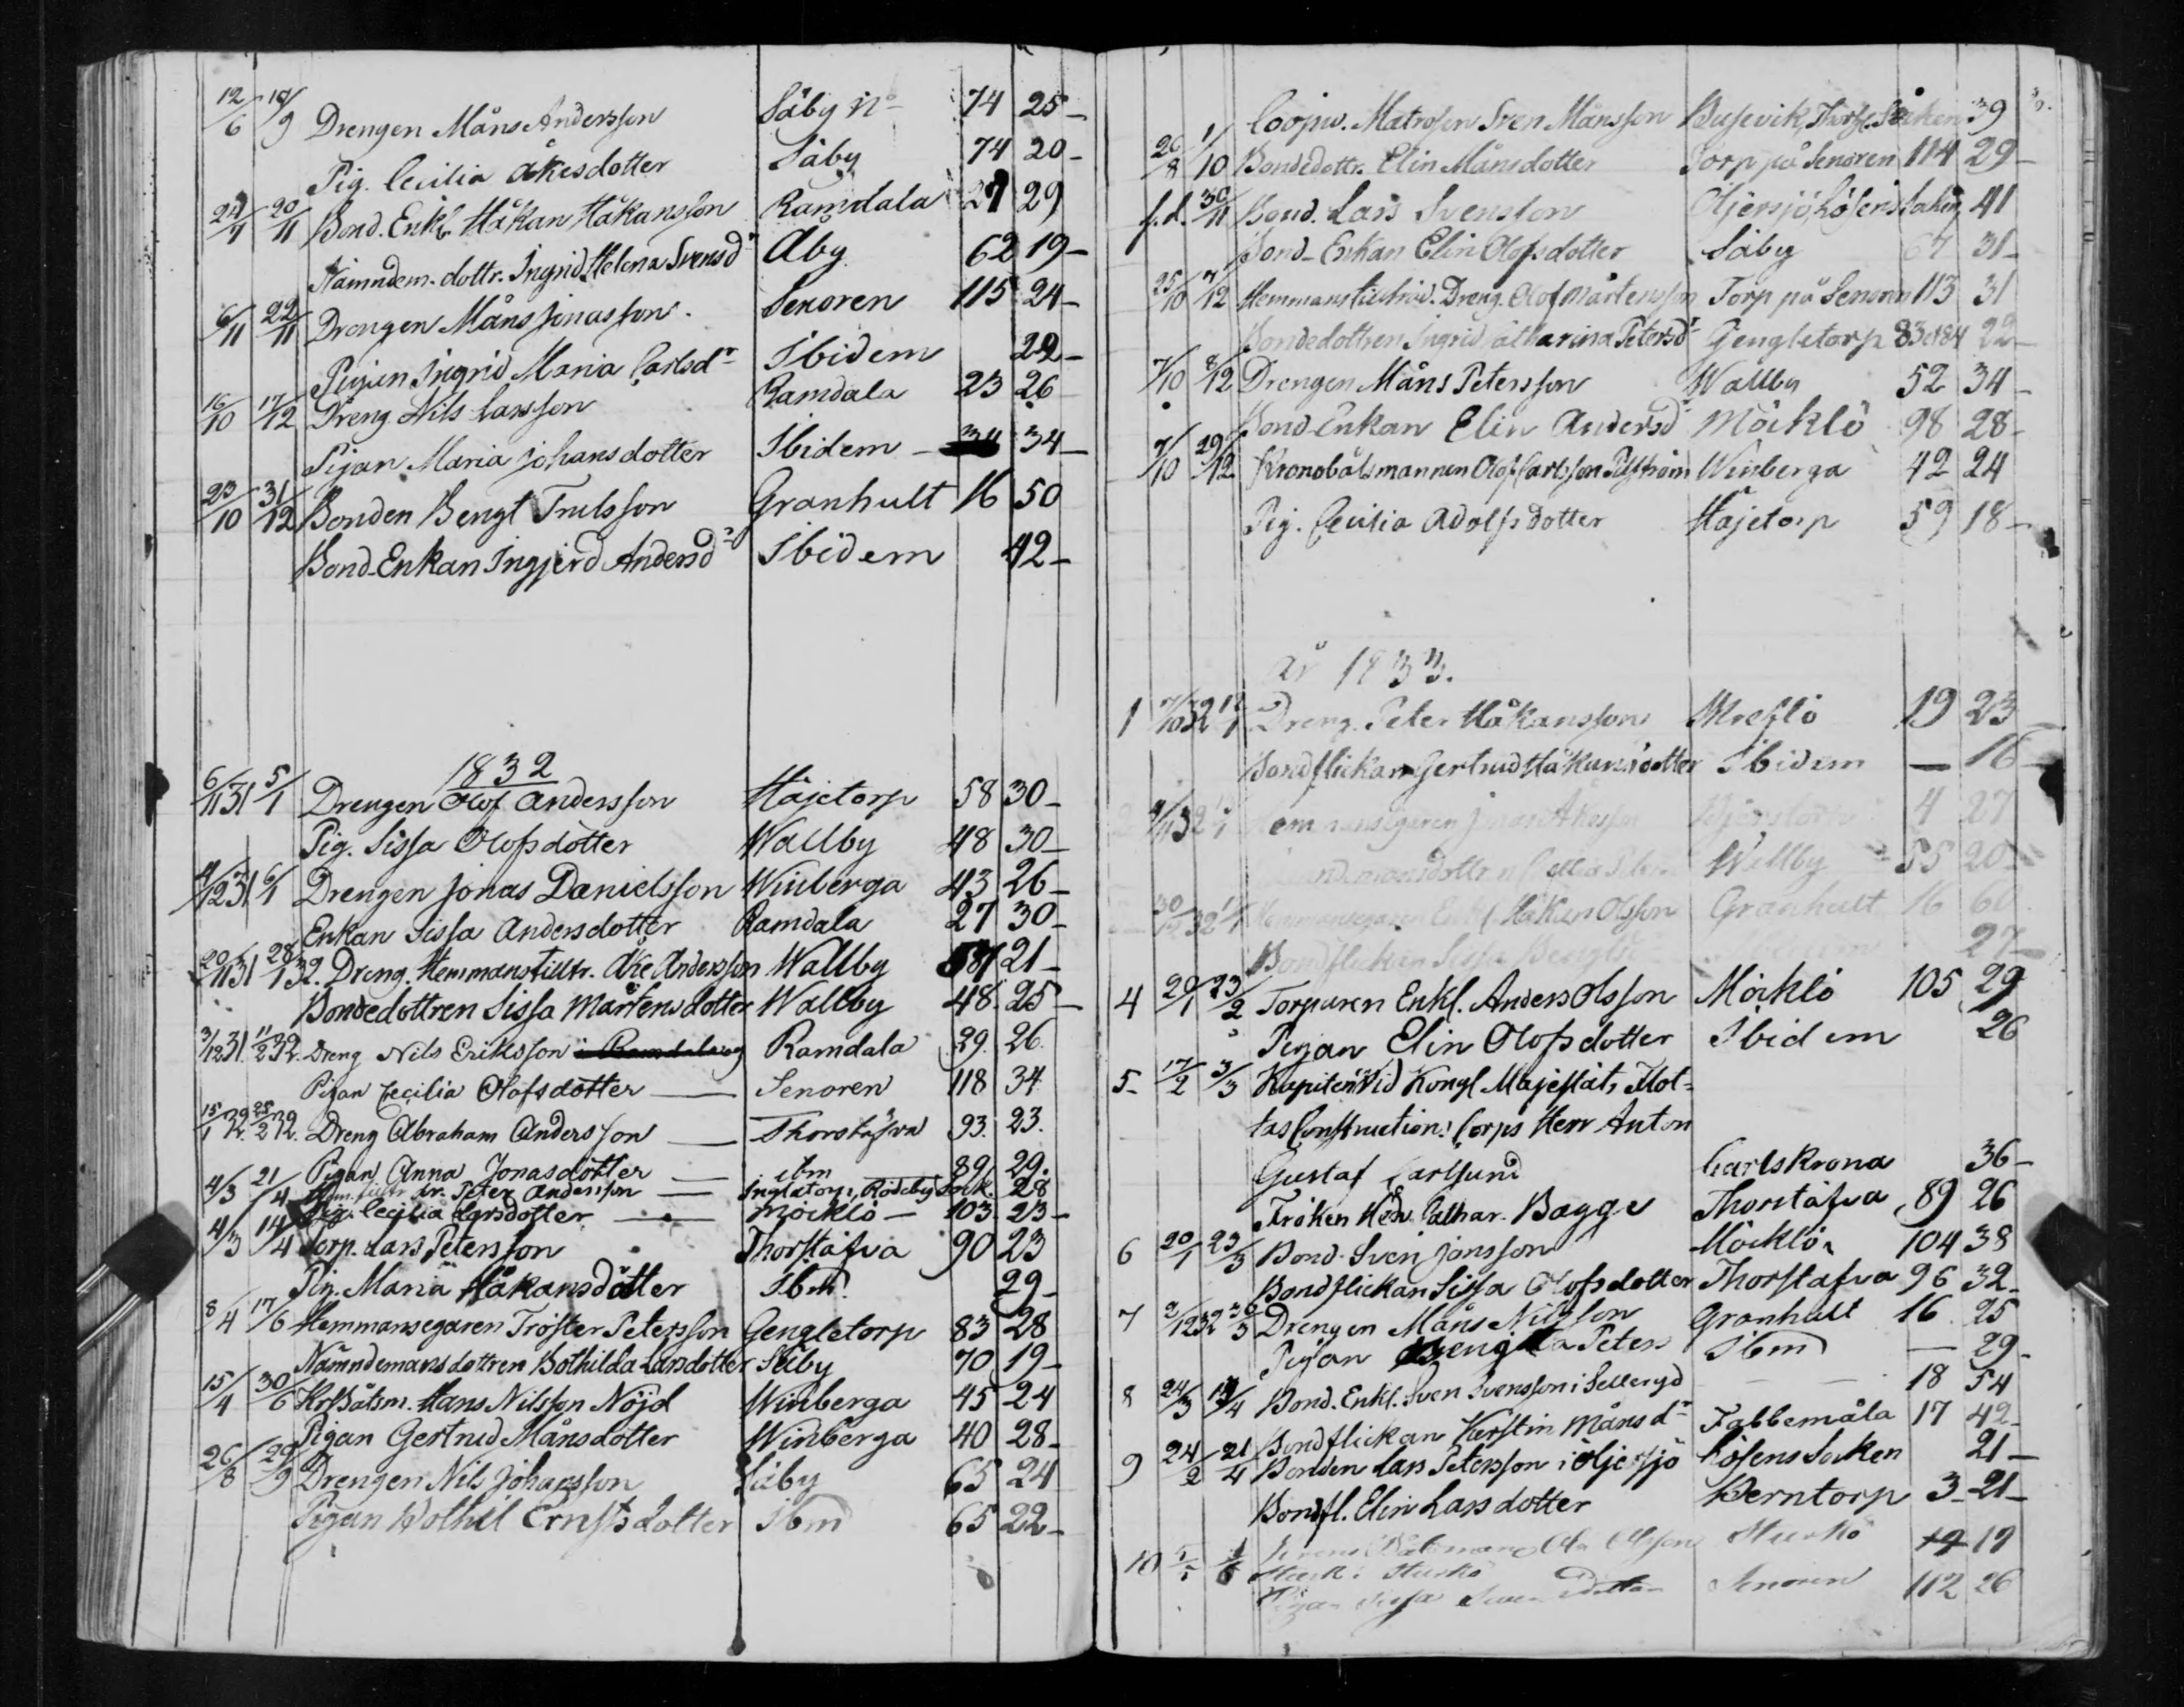 12/6 19/9 Drengen Måns Andersson Säby No 74 25-
Pig. Cecilia Åkesdotter Säby 74 20-
20/11 Bond. Enkl. Håkan Håkansson Ramdala 27 29
Nämndem. dottr. Ingrid Helena Svensdr Åby 62 19-
6/11 22/11 Drengen Måns Jonasson. Senoren 115 24-
Pigan Ingrid Maria Carlsdr Ibidem 22-
16/10 17/12 Dreng Nils Larsson Ramdala 23 26
Pigan Maria Johansdotter Ibidem - 34-
23/10 31/12 Bonden Bengt Trulsson Granhult 16 50
Bond-Enkan Ingjerd Andersdr Ibidem 42-
1832
6/11 31 5/1 Drengen Olof Andersson Häjetorp 58 30-
Pig. Sissa Olofsdotter Wallby 48 30-
4/12 31 6/1 Drengen Jonas Danielsson Winberga 43 26-
Enkan Sissa Andersdotter Ramdala 27 30-
20/11 31 28/1 32. Dreng. Hemmanstilltr. Åke Andersson Wallby 21-
Bondedottren Sissa Mårtensdotter Wallby 48. 25-
3/12 31. 11/2 32. Dreng Nils Eriksson i Ramdala Ramdala 29. 26.
Pigan Cecilia Olofsdotter — Senoren 118 34
15/1 32. 25/2 32. Dreng Abraham Andersson — Thorstäfva 93. 23.
Pigan Anna Jonasdotter — ibm 89. 29.
4/3 21/4 Hem. tilltr. dr. Peter Andersson — Inglatorp, Rödeby Sock. 28
Pig. Cecilia Larsdotter — Möcklö - 103. 23-
4/3 14/4 Torp. Lars Petersson Thorstäfva 90 23
Pig. Maria Håkansdotter Ibm. 29-
8/4 17/6 Hemmansegaren Tröster Petersson Gengletorp 83 28
Nämndemansdottren Bothilda Larsdotter Säby 70 19-
15/4 30/6 Kr Båtsm. Hans Nilsson Nöjd Winberga 45 24
Pigan Gertrud Månsdotter Winberga 40 28-
26/8 29/9 Drengen Nils Johansson Säby 65 24
Pigan Bothil Ernstsdotter Ibm 65 22-
Matrosen Sven Månsson 39
26/8 1/10 Bondedottr. Elin Månsdotter Torp på Senoren 114 29-
f.d. 30/11 Bond. Lars Svensson Öljersjö, Lösens Sockn 41
Bond-Enkan Elin Olofsdotter Säby 67 31-
25/10 7/12 Hemmanstillträd. Dreng. Olof Mårtensson Torp på Senoren 113 31
Bondedottren Ingrid Catharina Petersdr Gengletorp 83 et 84 22-
7/10 8/12 Drengen Måns Petersson Wallby 52 34-
Bond-Enkan Elin Andersdr Möcklö 98 28-
7/10 29/12 Kronobåtsmannen Olof Carlsson Winberga 42 24
Pig. Cecilia Adolfsdotter Häjetorp 59 18-
År 1833.
1 7/10 32 Dreng. Peter Håkansson 19 23
Bondflickan Gertrud Håkansdotter Ibidem - 16
2 Hemmansegaren Jonas Åkesson 4 27
Wallby 55 20-
30/12 32 Hemmansegaren Enkl. Håkan Olsson Granhult 16 60
Bondflickan Sissa 27-
4 20/1 23/2 Torparen Enkl. Anders Olsson Möcklö 105 29
Pigan Elin Olofsdotter Ibidem 26
5- 17/2 3/3 Kapiten vid Kongl Majestäts Flot-
tas Constructions Corps Herr Anton
Gustaf Carlsund Carlskrona 36-
Fröken Hedv. Cathar. Bagge Thorstäfva 89 26
6 20/1 23/3 Bond. Sven Jonsson Möcklö 104 38
Bondflickan Sissa Olofsdotter Thorstäfva 96 32-
7 2/12 32 30/3 Drengen Måns Nilsson Granhult 16. 25
Pigan Bengta Peters Ibm - 29-
8 24/3 14/4 Bond. Enkl. Sven Svensson i Selleryd 18 54
Bondflickan Kerstin Månsdr Fabbemåla 17 42-
9 24/2 21/4 Bonden Lars Petersson i Öljersjö Lösens Socken 21-
Bondfl. Elin Larsdotter Berntorp 3- 21-
10 Olsson Sturkö 19
i Sturkö
Pigan Sissa Svensdotter Senoren 112 26